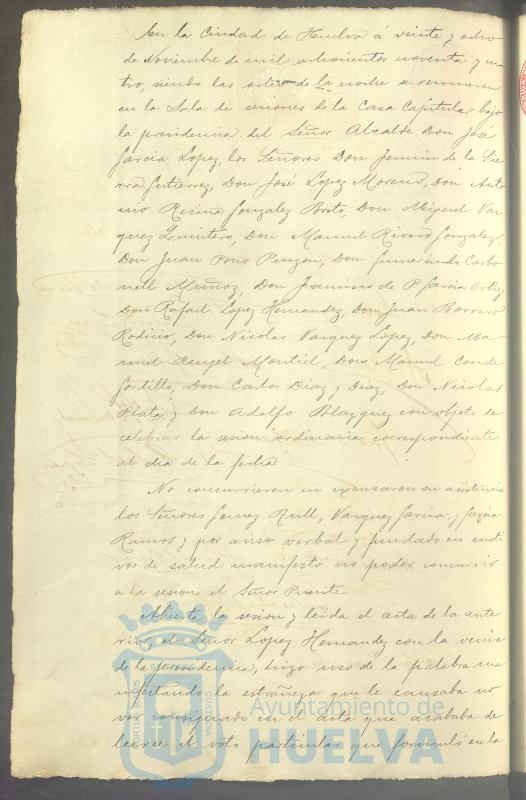 En la Ciudad de Huelva á veinte y ocho
de Noviembre de mil ochocientos noventa y cua
tro, siendo las ocho de la noche se reunieron
en la Sala de sesiones de la Casa Capitular bajo
la presidencia del Señor Alcalde Don José
García Lopez, los Señores Don Fermin de la Sie
rra Gutierrez, Don José Lopez Moreno, Don Anto
nio Resina Gonzalez Brito, Don Miguel Vaz
quez Quintero, Don Manuel Rivero Gonzalez,
Don Juan Pons Pinzon, Don Gumersindo Carbo
nell Muñoz, Don Francisco de P. García Ortiz,
Don Rafael Lopez Hernandez, Don Juan Borrero
Rodicio, Don Nicolas Vazquez Lopez, Don Ma
nuel Rengel Montiel, Don Manuel Conde
Gordillo, Don Carlos Diaz y Diaz, Don Nicolas
Plata y Don Adolfo Blazquez con objeto de
celebrar la sesion ordinaria correspondiente
al dia de la fecha
No concurrieron ni excusaron su asistencia
los Señores Gomez Rull, Vazquez García, y García
Ramos y por aviso verbal y fundado en moti
vos de salud manifestó no poder concurrir
á la sesion el Señor Puente.
Abierta la sesion y leida el acta de la ante
rior el Señor Lopez Hernandez con la venia
de la presidencia, hizo uso de la palabra ma
nifestando la estrañeza que le causaba no
ver consignado en el acta que acababa de
leerse el voto particular que formuló en la
Ayuntamiento de
HUELVA